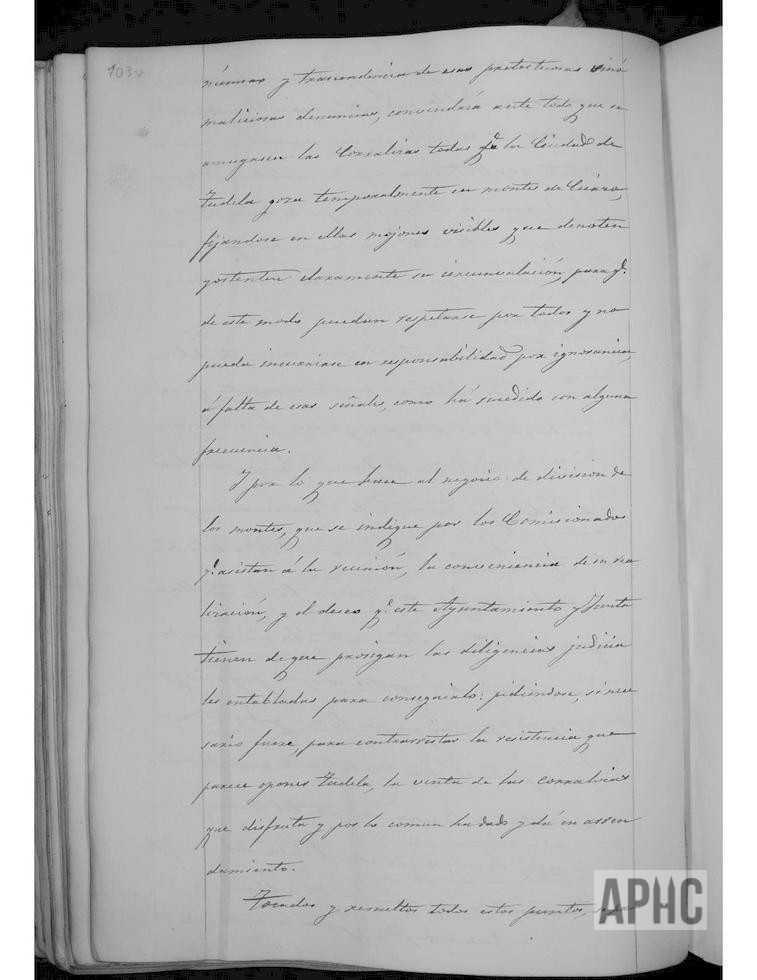 103v
número y trascendencia de esas pretestuosas sinó
maliciosas denuncias, convendria ante todo que se
amugasen las Corralizas todas qe la Ciudad de
Tudela goza temporalmente en montes de Cierzo,
fijandose en ellas mojones visibles que denoten
y ostenten claramente su circunvalación, para qe.
de este modo puedan respetarse por todos y no
pueda incurrirse en responsabilidad por ignorancia,
á falta de esas señales, como há sucedido con alguna
frecuencia.
Y por lo que hace al negocio de division de
los montes, que se indique por los Comisionados
qe. asistan á la reunión, la conveniencia de su rea
lización, y el deseo qe. este Ayuntamiento y Junta
tienen de que prosigan las diligencias judicia
les entabladas para conseguirlo: pidiendose, si nece
sario fuere, para contrarrestar la resistencia que
parece opones Tudela, la venta de las corralizas
que disfruta y por lo comun ha dado y dá en arren
damiento.
Tocados y resueltos todos estos puntos,
APHC